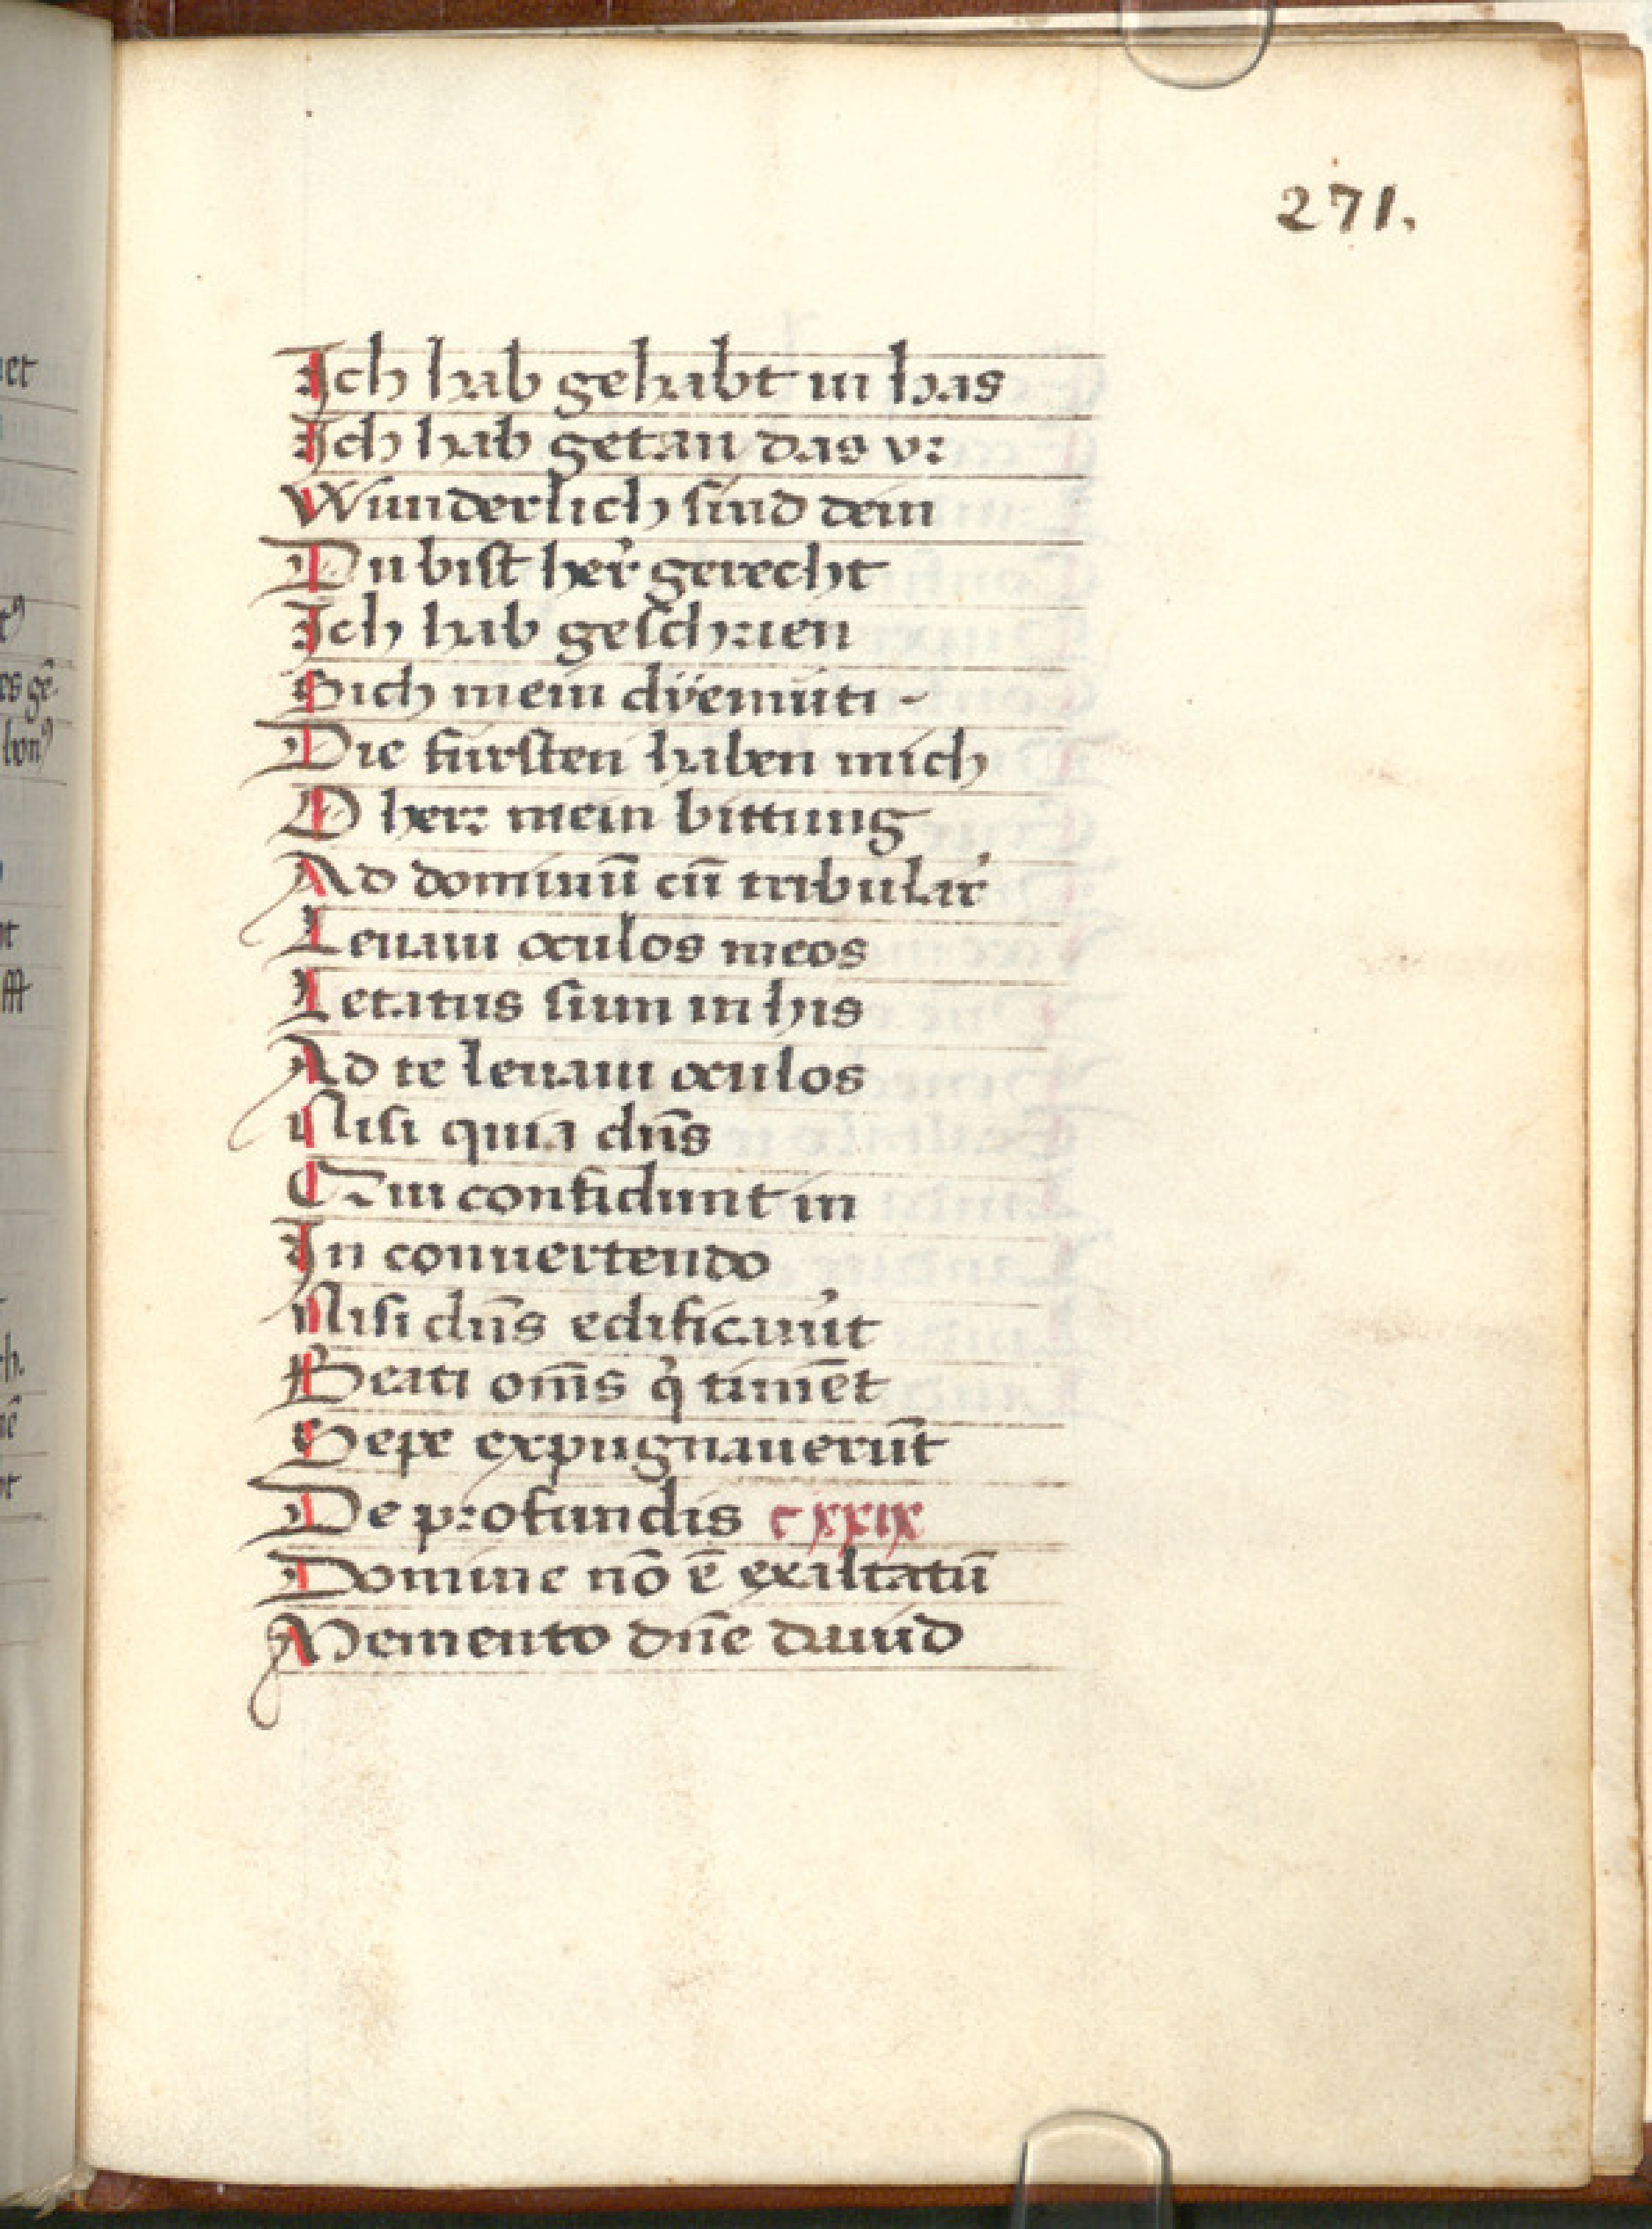 271.
Ich hab gehabt in has
Ich hab getan das vꝛ
Wunderlich sind dein
Du bist her̉ gerecht
Ich hab geschꝛien
Sich mein dÿemüti -
Die fürsten haben mich
O herꝛ mein bittung
Ad dominū cū tribular̉
Leuaui oculos meos
Letatus sum in his
Ad te leuaui oculos
Nisi quia dn̄s
Qui confidunt in
In conuertendo
Nisi dn̄s edificau̓it
Beati om̄s q̇ timēt
Sepe expugnauerūt
De pꝛofundis cxxix
Domine nō ē exaltatū
Memento dn̄e dauid